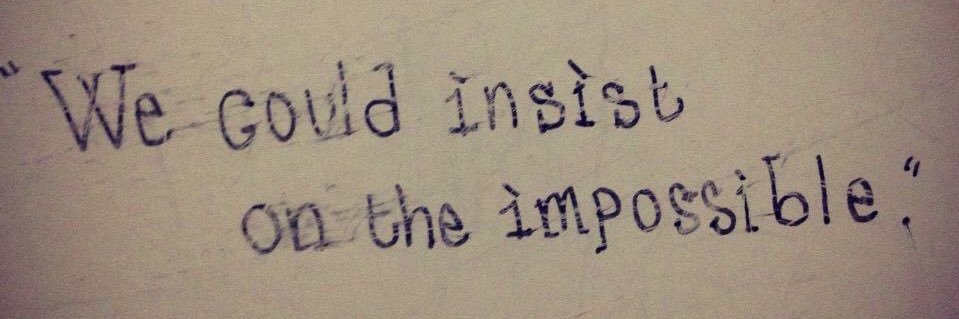 "We could insist
on the impossible."